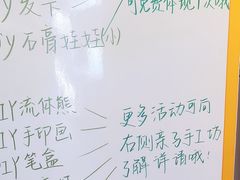 可免费体现1次哦
DIY发卡
DIY石膏娃娃(小)
DIY流体熊
DIY手印画
DIY笔盒
更多活动可向
右侧亲子手工坊
了解详请哦!